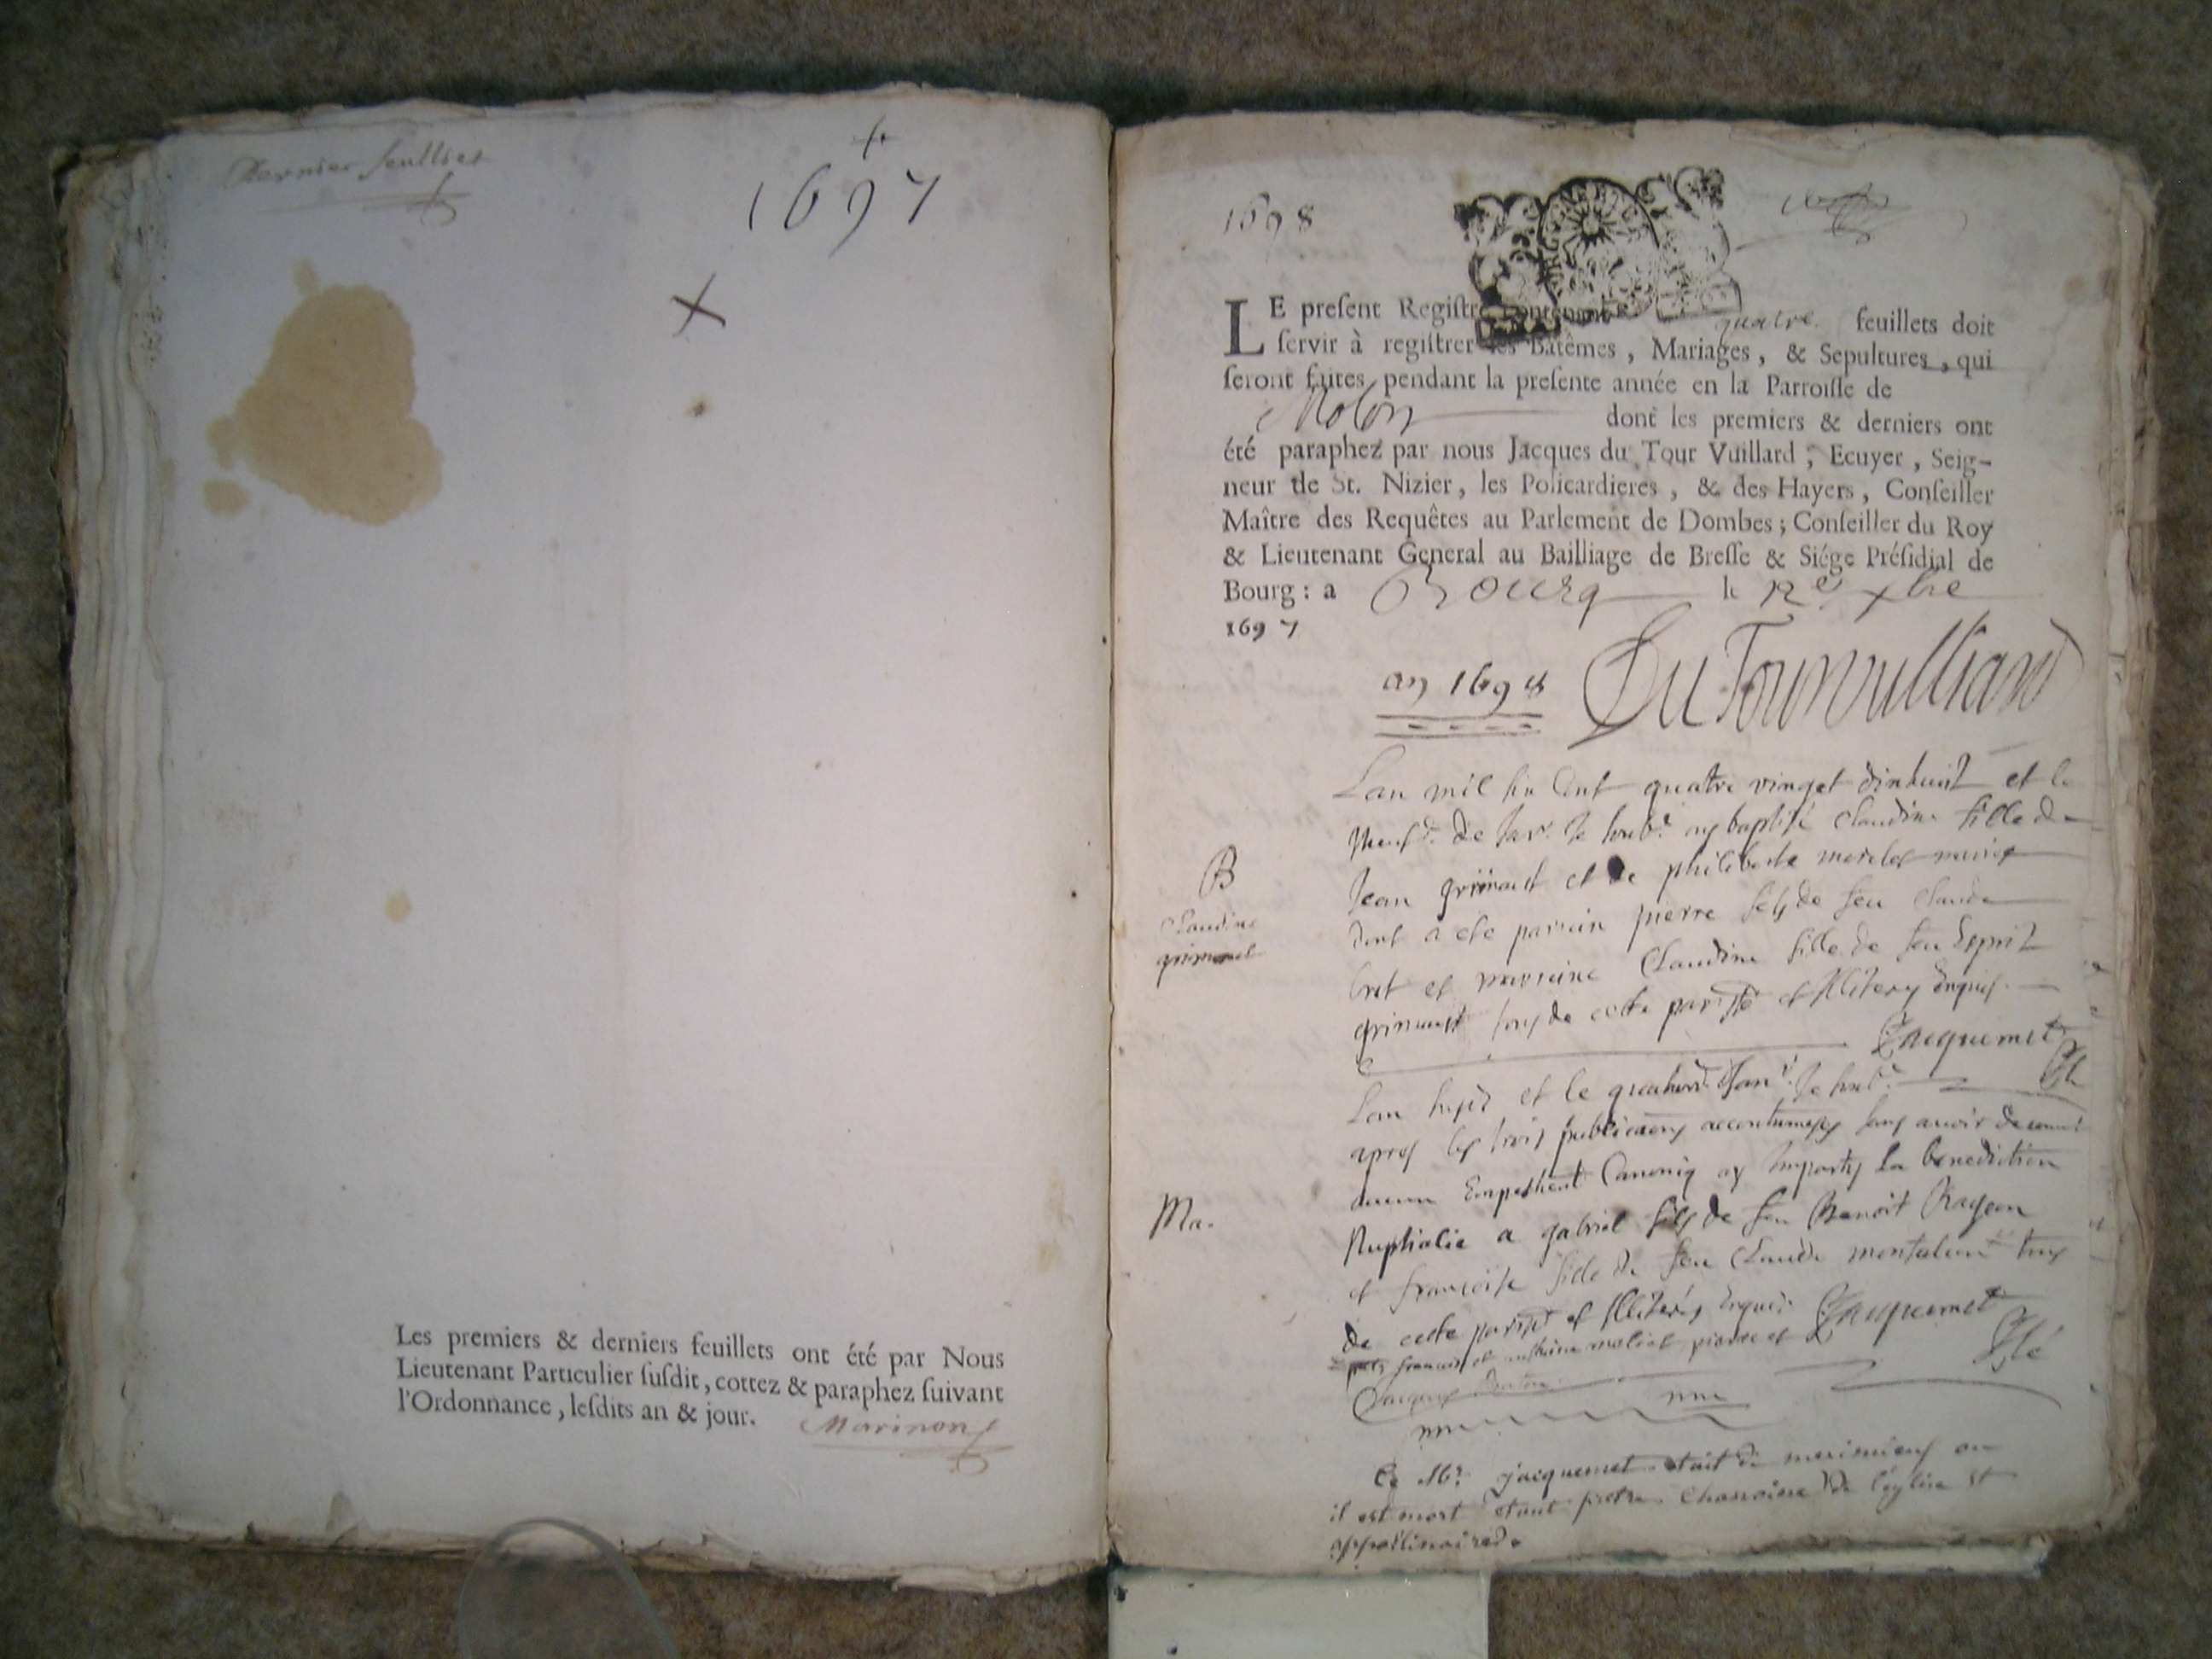 Dernier feullies
1697
Les premiers & derniers feuillets ont été par Nous
Lieutenant Particulier ſuſdit, cottez & paraphez ſuivant
l'Ordonnance, leſdits an & jour.
Marinon
1698
LE preſent Regiſtre contenant quatre feuillets doit
ſervir à regiſtrer les Batêmes, Mariages, & Sepultures, qui
ſeront faites pendant la preſente année en la Parroiſſe de
Molon dont les premiers & derniers ont
été paraphez par nous Jacques du Tour Vuillard, Ecuyer, Seig-
neur de St. Nizier, les Policardieres, & des Hayers, Conſeiller
Maître des Requêtes au Parlement de Dombes; Conſeiller du Roy
& Lieutenant General au Bailliage de Breſſe & Siége Préſidial de
Bourg: a Bourg le 12e xbre
1697
an 1698 DuTourvulliard
Lan mil six Cent quatre vinget dixhuict et le
de Janr. Je soubt. ay baptisé Claudine fille de
B
Claudine
grimaut
Jean grimaut et de philiberte mariés
dont a ete parrain pierre fils de feu Claude
et marraine Claudine fille de feu Esprit
grimaut tous de cette parisse et Illiterez Enquis.
Jacquemet
Lan susd et le Janr. Je soubt.
apres les trois publicaons accoutumees sans avoir decouvert
aucun Empeshent Canoniq ay Imparty La benediction
Ma.
Nuptialle a gabriel fils de feu Benoit Ragon
et françoise fille de feu Claude tous
de cette pariss et Illiterés Enquis. Jacquemet
pnts francois et pierre et
Jacques
Ce Mr. jacquemet etait de meximieux ou
il est mort etant pretre chanoine de l'église St
appollinaire.